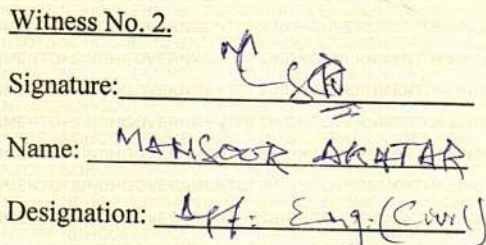 Witness No. 2.
Signature:
Name: MANSOOR AKHTAR
Designation: Eng. (Civil)